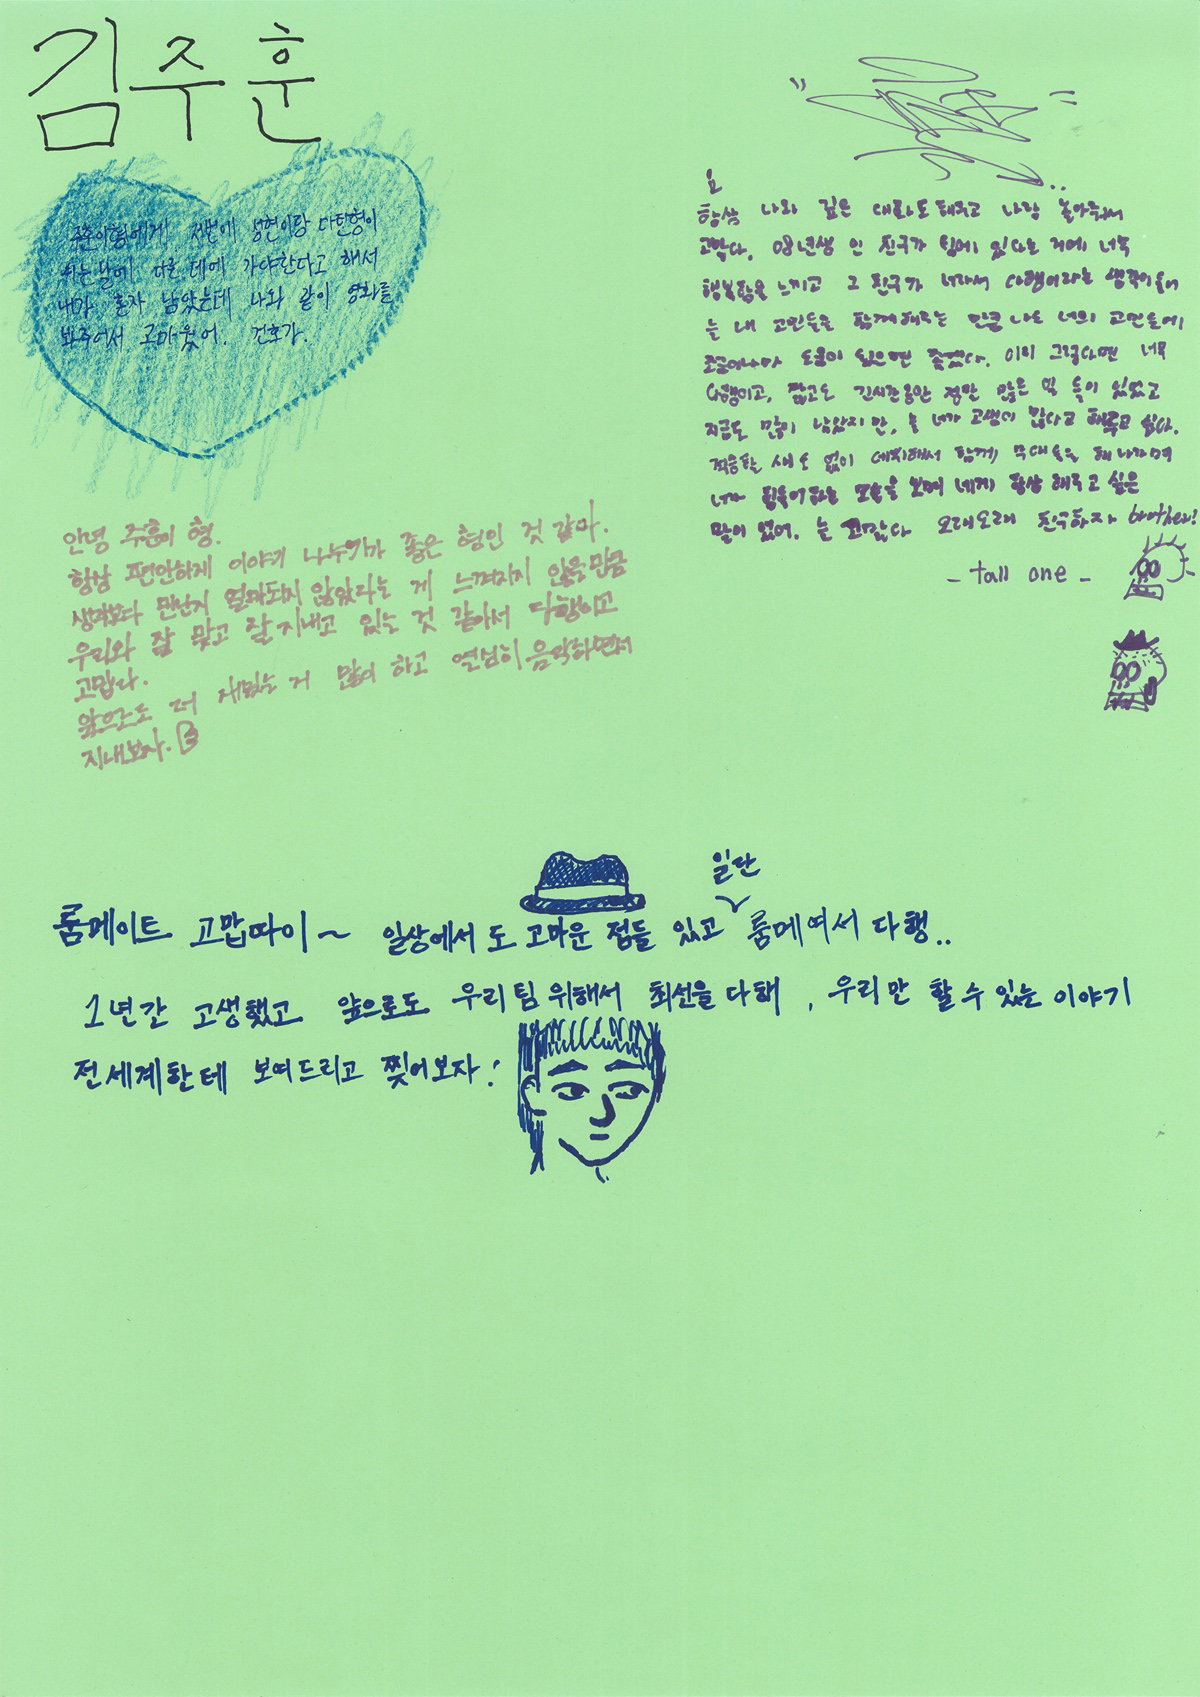 김주훈
주훈이형에게. 저번에 성현이랑 마틴형이
쉬는날에 다른 데에 가야한다고 해서
내가 혼자 남았는데 나와 같이 영화를
봐주어서 고마웠어. 건호가.
요
항상 나와 깊은 대화도 해주고 나랑 놀아줘서
고맙다. 08년생 인 친구가 팀에 있다는 거에 너무
행복함을 느끼고 그 친구가 너라서 다행이라는 생각이 들어
늘 내 고민들을 함께해주는 만큼 나도 너의 고민들에
조금이나마 도움이 됐으면 좋겠다. 이미 그렇다면 너무
다행이고, 짧고도 긴시간동안 정말 많은 일 들이 있었고
지금도 많이 남았지만, 늘 너가 고생이 많다고 해주고 싶다.
적응할 새도 없이 데뷔해서 함께 무대들을 해나가며
너가 힘들어하는 모습을 보며 네게 항상 해주고 싶은
말이 있어. 늘 고맙다 오래오래 친구하자 brother!
- tall one -
안녕 주훈이 형.
항상 편안하게 이야기 나누기가 좋은 형인 것 같아.
생각보다 만난지 얼마되지 않았다는 게 느껴지지 않을만큼
우리와 잘 맞고 잘 지내고 있는 것 같아서 다행이고
고맙다.
앞으로도 더 재밌는 거 많이 하고 열심히 음악하면서
지내보자.
룸메이트 고맙따이~ 일상에서도 고마운 점들 있고 일단 룸메여서 다행..
1년간 고생했고 앞으로도 우리팀 위해서 최선을 다해, 우리만 할 수 있는 이야기
전세계한테 보여드리고 찢어보자!